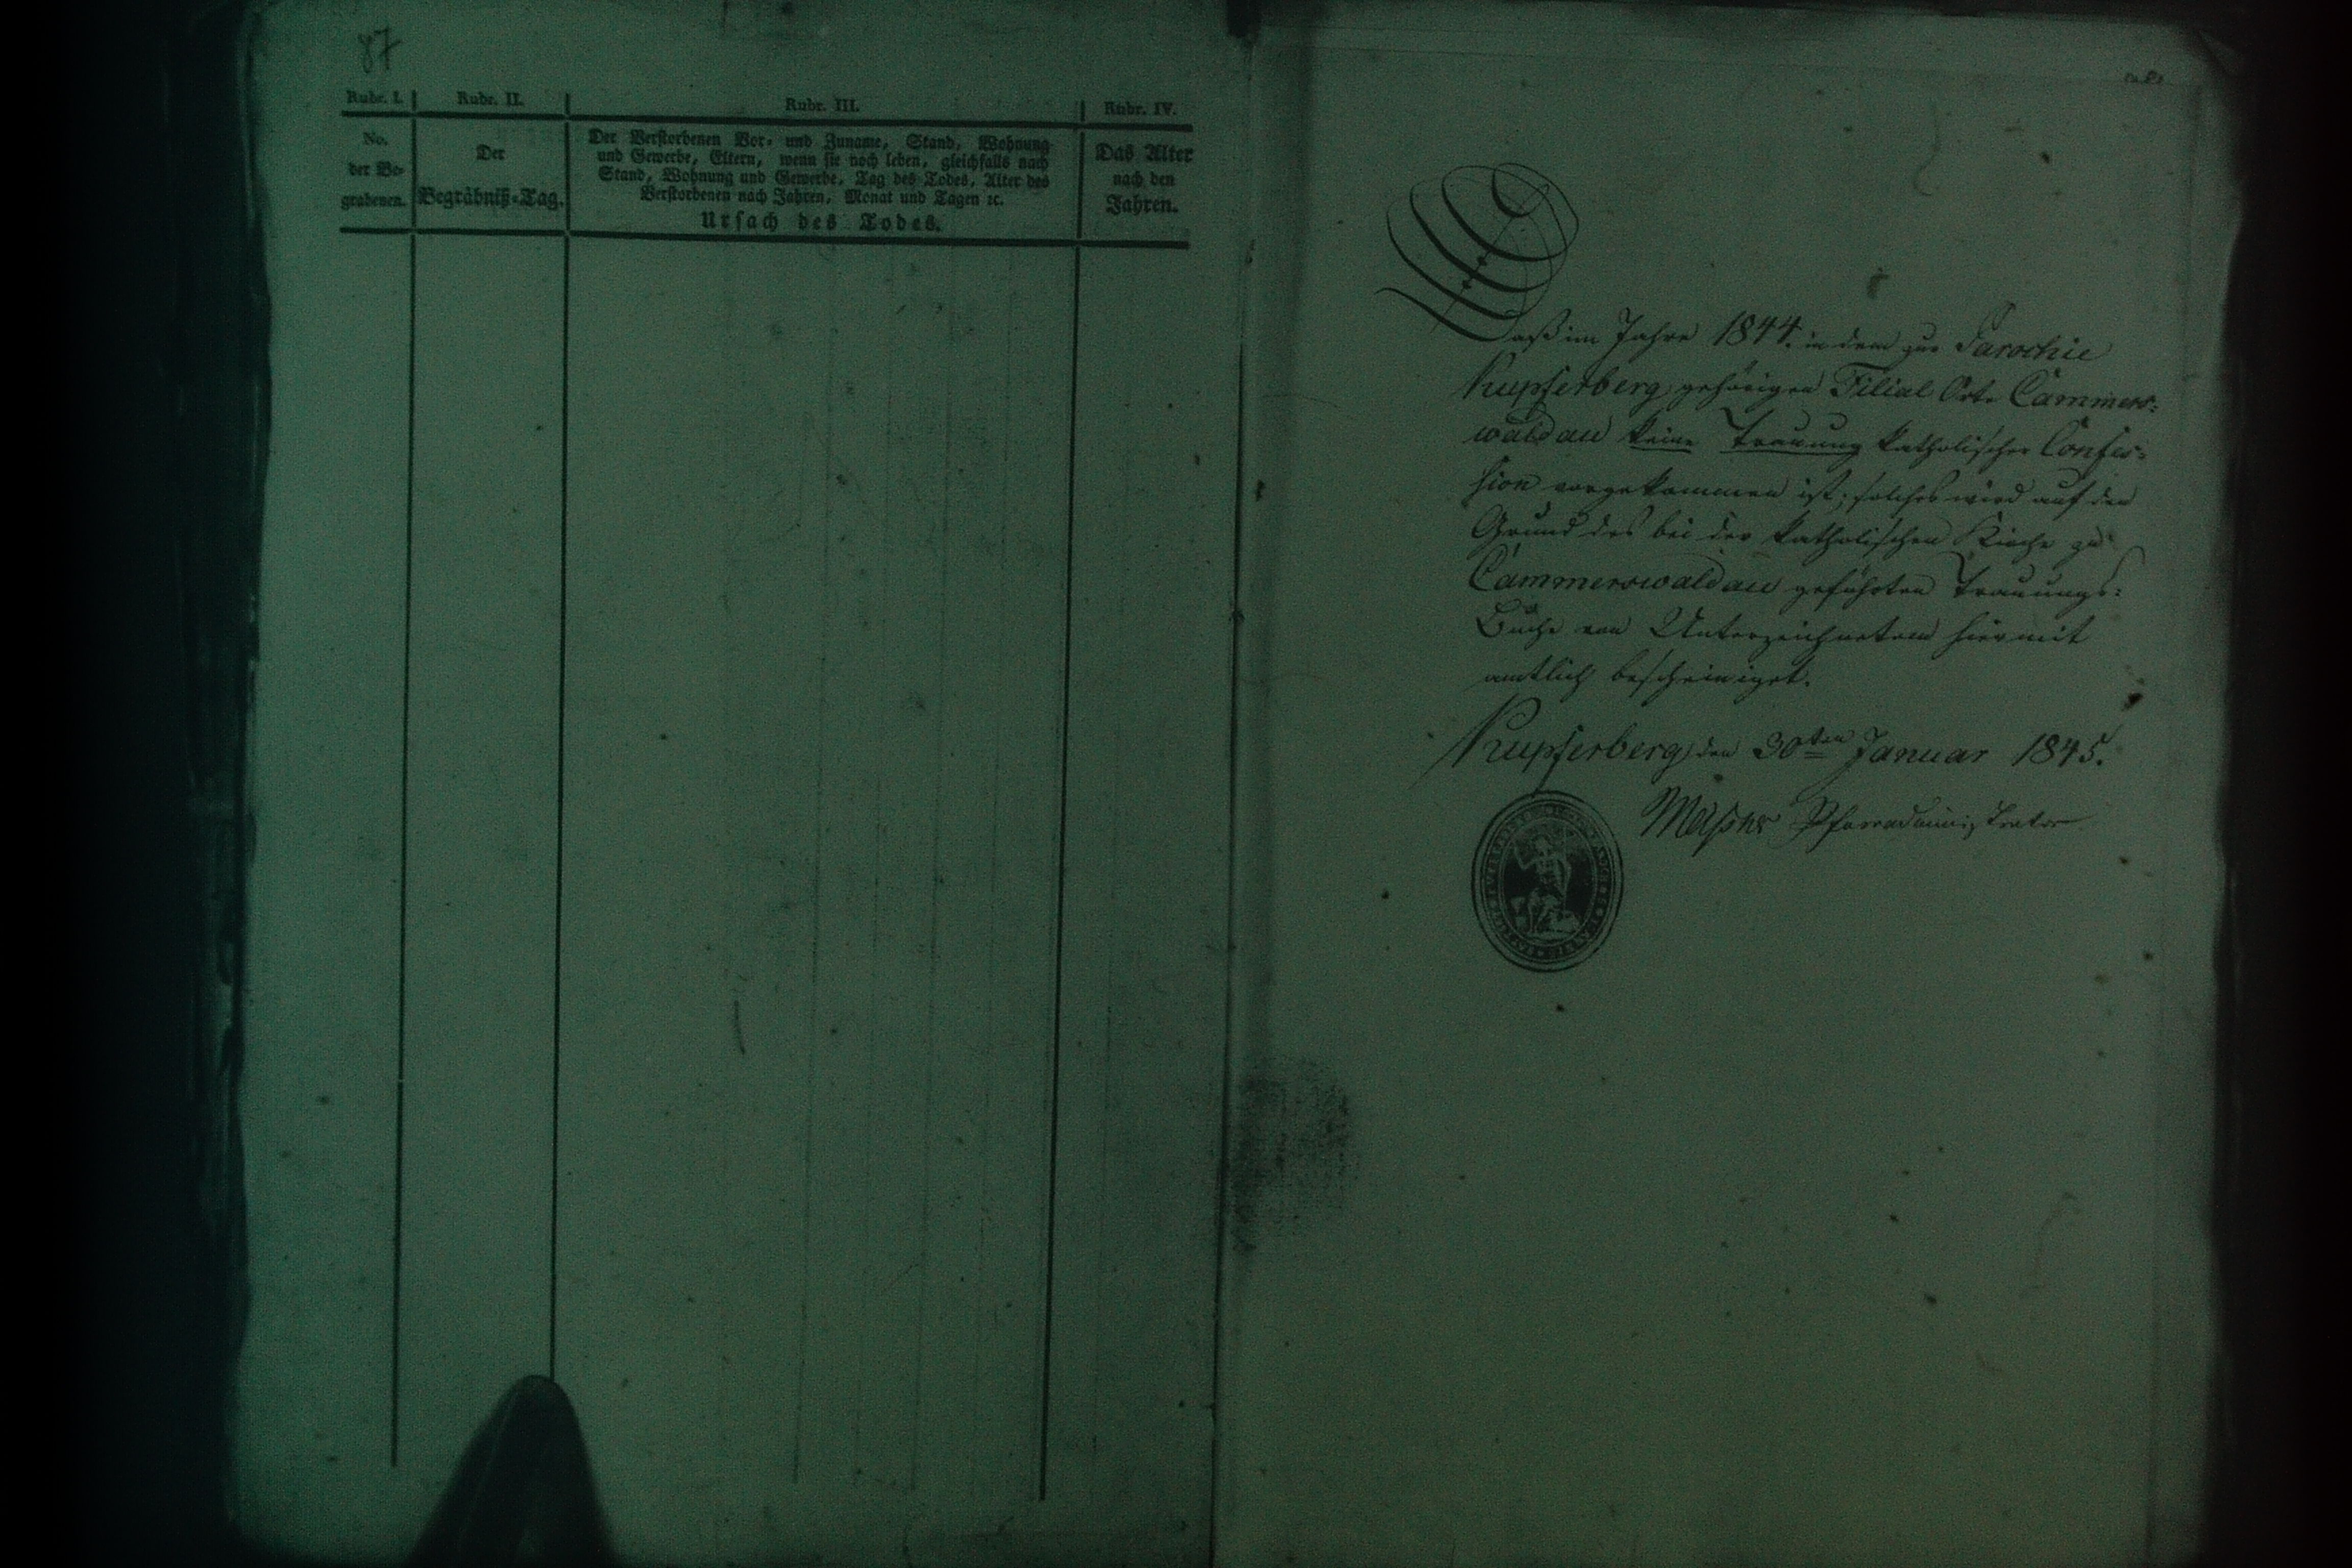 87
Rubr. I. Rubr. II. Rubr. III. Rubr. IV.
No.
der Be-
grabenen.
Der
Begräbniß-Tag.
Der Verstorbenen Vor- und Zuname, Stand, Wohnung
und Gewerbe, Eltern, wenn sie noch leben, gleichfalls nach
Stand, Wohnung und Gewerbe, Tag des Todes, Alter des
Verstorbenen nach Jahren, Monat und Tagen ꝛc.
Ursach des Todes.
Das Alter
nach den
Jahren.
Daß im Jahre 1844. in dem zur Parochie
Kupferberg gehörigen Filial Orte Cammers-
waldau keine Trauung katholischer Confes-
sion vorgekommen ist; solches wird auf den
Grund des bei der katholischen Kirche zu
Cammerswaldau geführten Trauungs-
Buche von Unterzeichnetem hiermit
amtlich bescheiniget.
Kupferberg den 30ten Januar 1845.
Pfarradministrator